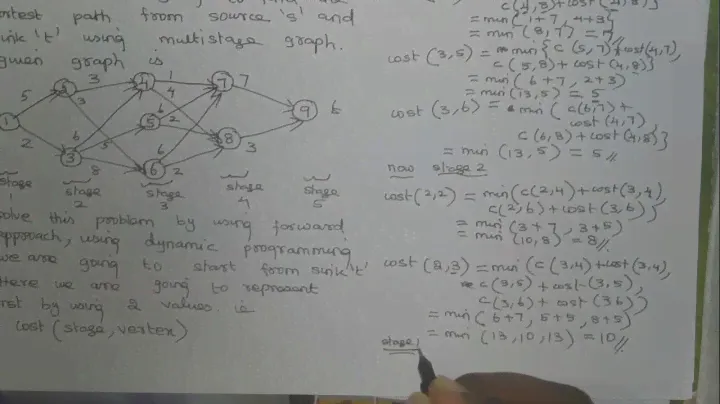 ortest path from source 's' and
ink 't' using multistage graph.
given graph is
5 2 3 3 6 5 8 1 4 6 2 6 2 7 3
1 2 3 4 5 6 7 8 9 t
stage 1
stage 2
stage 3
stage 4
stage 5
solve this problem by using forward
approach, using dynamic programming
we are going to start from sink 't'
Here we are going to represent
cost by using 2 values. ie
cost (stage, vertex)
c(4,8)+cost(4,8)}
= min(1+7, 4+3)
= min (8, 7) = 7
cost (3,5) = min{c (5,7)+cost(4,7),
c (5,8) + cost(4,8)}
= min (6+7, 2+3)
= min(13, 5) = 5
cost (3,6) = min( c(6,7) +
cost(4,7)
c(6,8) + cost(4,8)}
= min (13, 5) = 5//
now stage 2
cost(2,2) = min(c(2,4) + cost(3,4),
c(2,6) + cost(3,6)}
= min(3+7, 3+5)
= min(10,8) = 8//
cost (2,3) = min (c(3,4)+cost(3,4),
c(3,5) + cost(3,5),
c(3,6) + cost (3 6))
= min( 6+7, 5+5, 8+5)
= min (13, 10, 13) = 10//
stage 1